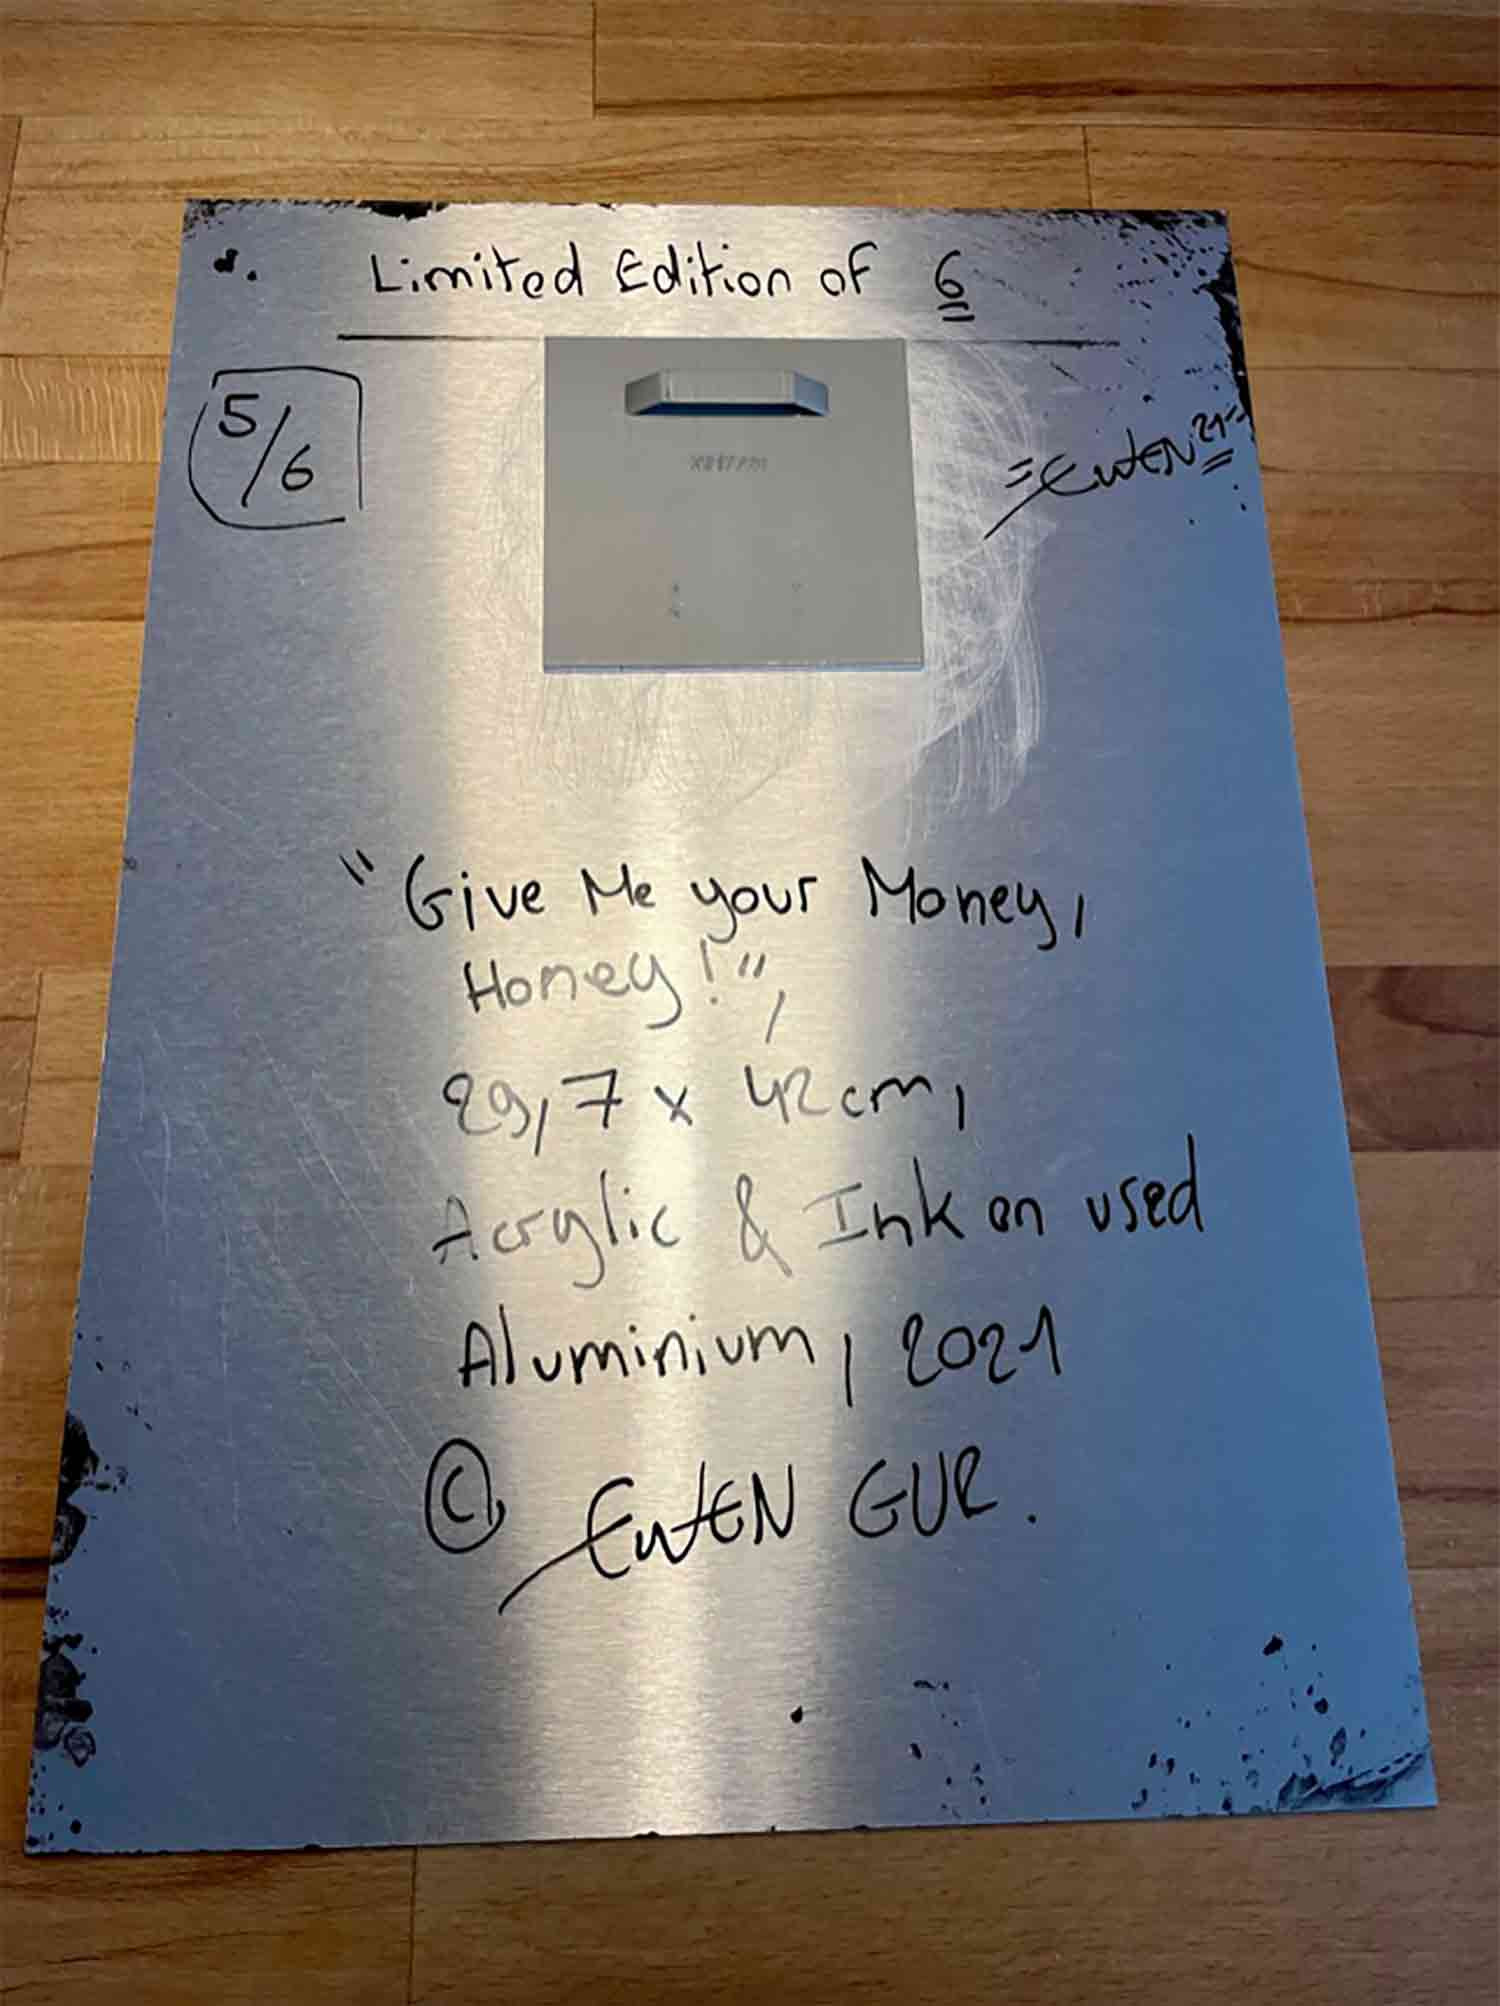 Limited Edition of 6
5/6
EWEN 21
"Give Me your Money,
Honey!",
29,7 x 42cm,
Acrylic & Ink on used
Aluminium, 2021
© EWEN GUR.